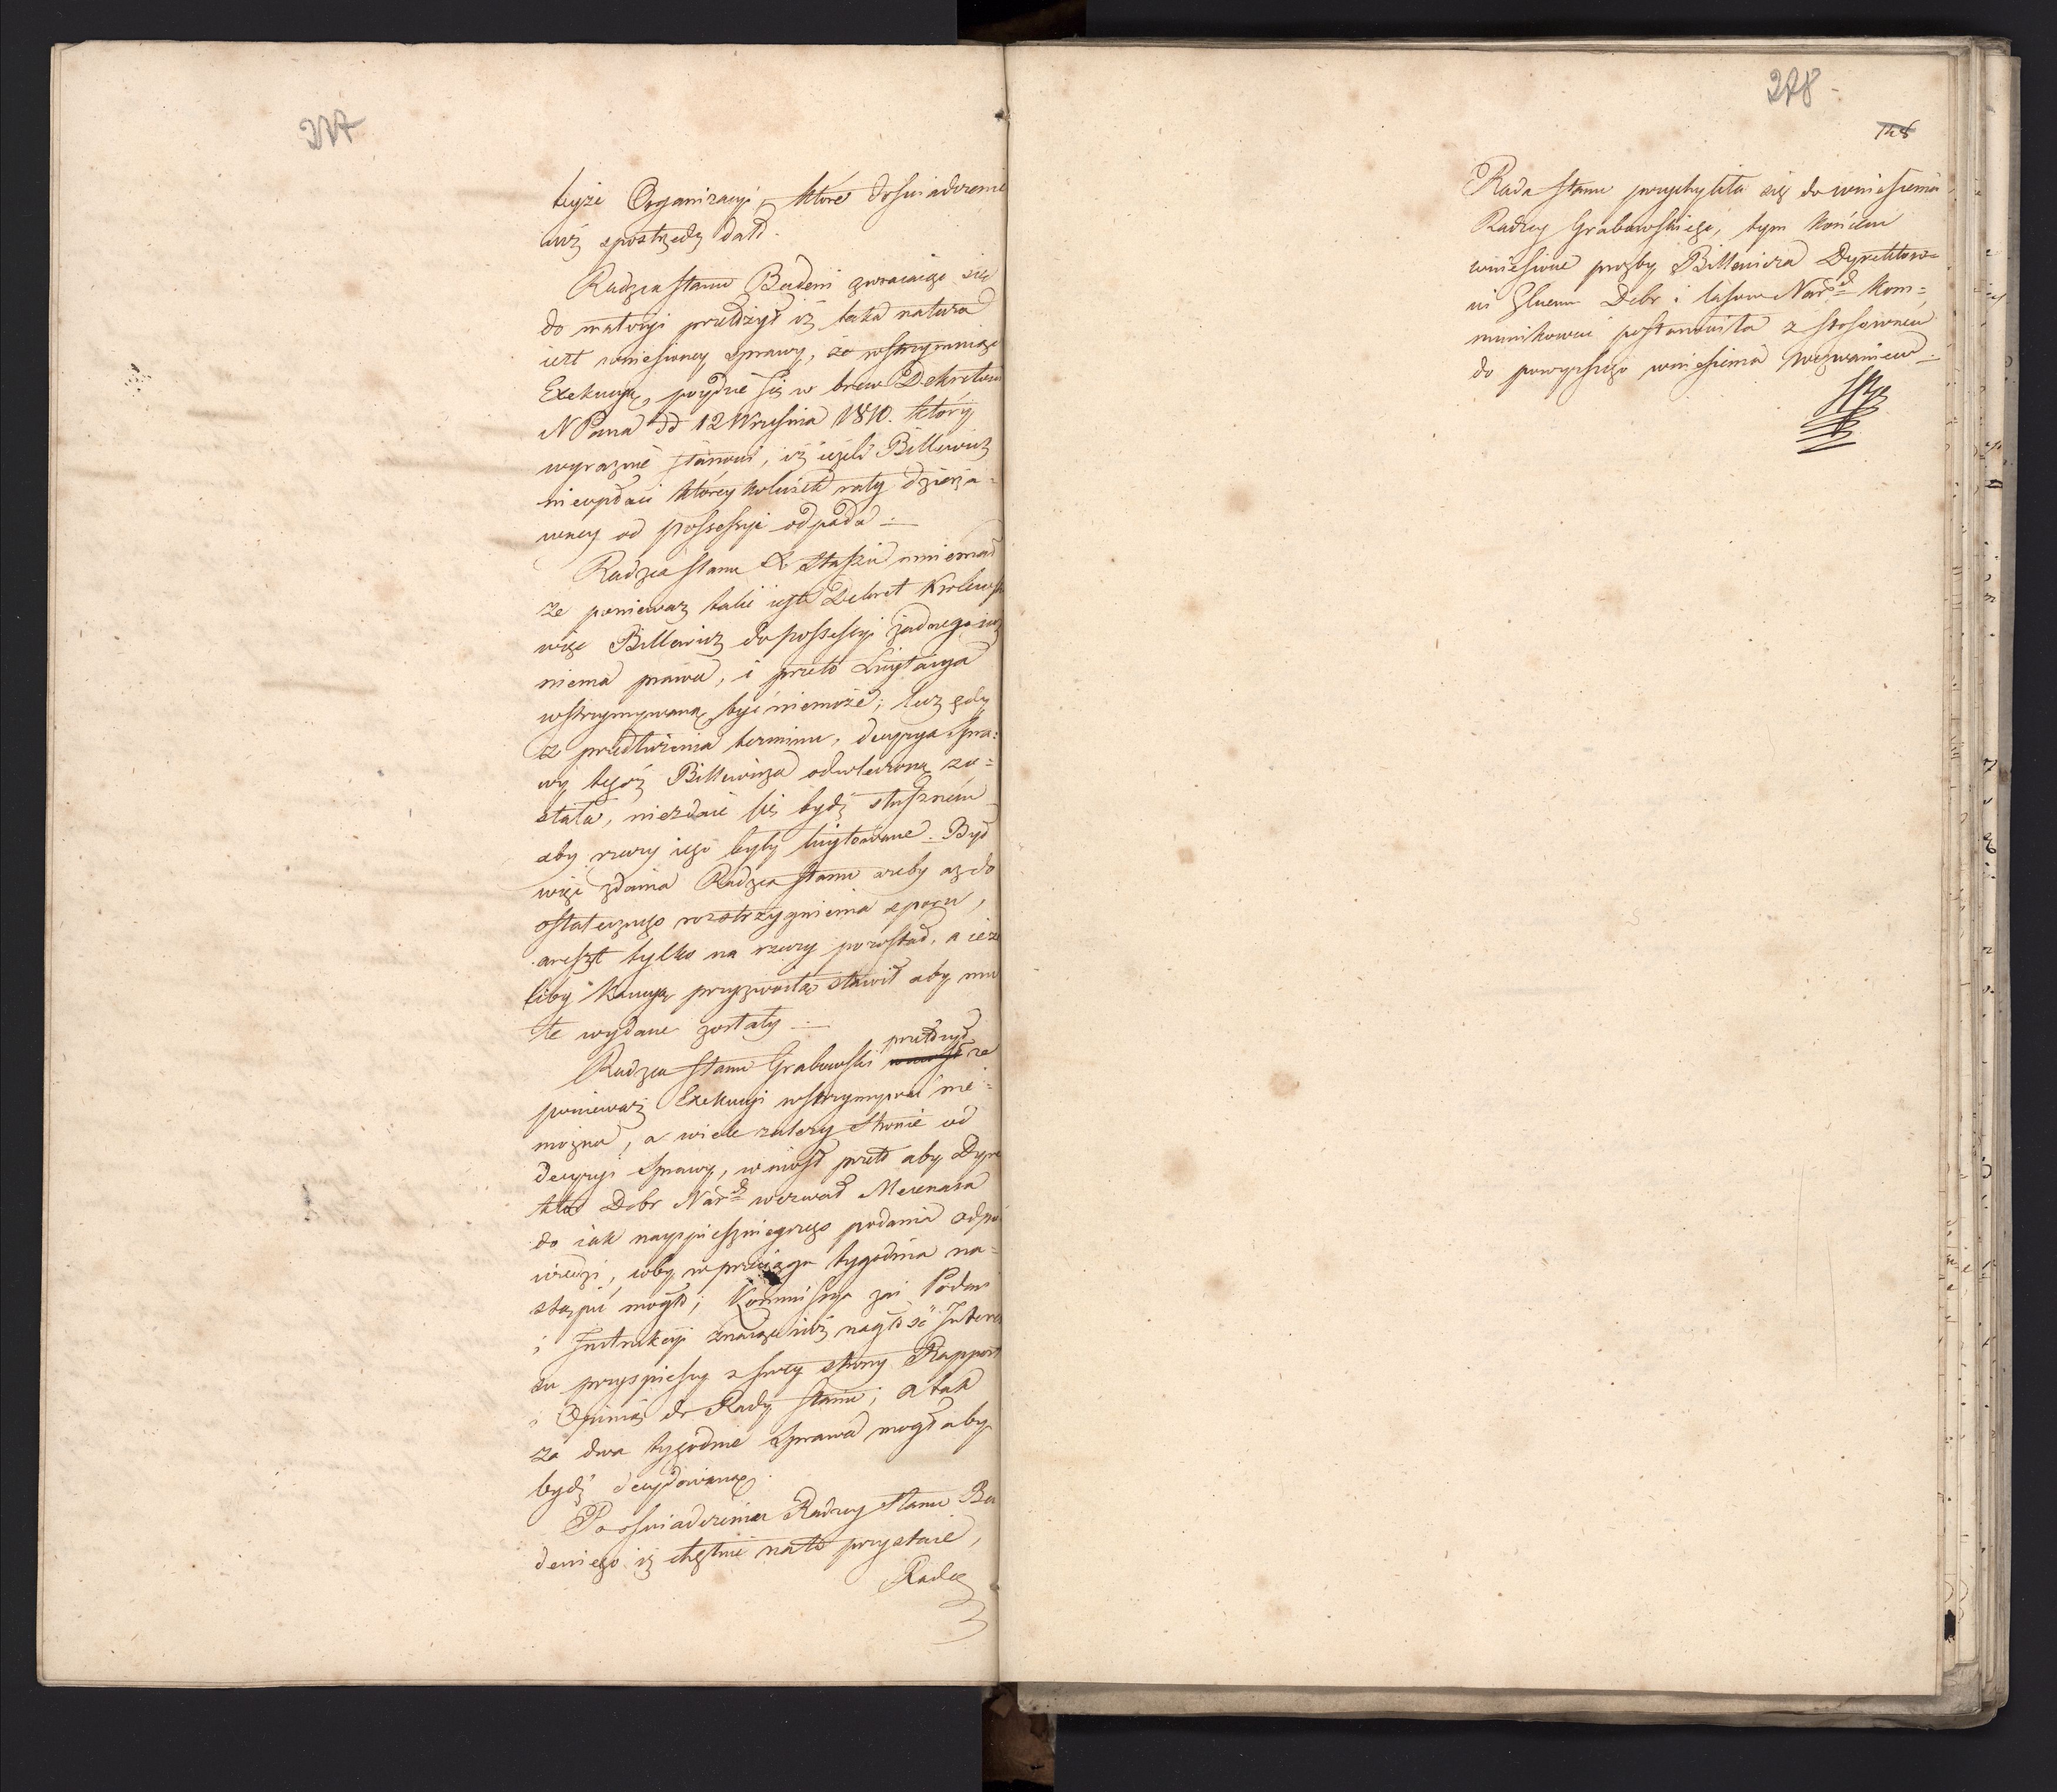 277
teyże Organizacyi, które doświadczenie
iuż spostrzedz dało.
Radzca Stanu Badeni zwracaiąc się
do materyi przełożył iż taka natura
iest wniesioney sprawy, że wstrzymuiąc
Exekucyą, poydzie się w brew Dekretowi
N Pana dd 12 Września 1810. który
wyraźnie stanowi, iż ieżeli Billewicz
nieopłaci któreykolwiek raty dzierża=
wney od possessyi odpada.
Radzca Stanu X Staszic mniemał
że ponieważ taki iest Dekret Krolewski
więc Billewicz do possessyi żadnego iuż
niema prawa, i przeto Licytacya
wstrzymywaną być niemoże; lecz gdy
z przedłużenia terminu, decyzya spra=
wy tegoż Billewicza odwleczoną zo=
stała, niezdaie się bydź słusznem
aby rzeczy iego były licytowane. Był
więc zdania Radzca Stanu ażeby aż do
ostatecznego rozstrzygnienia sporu,
areszt tylko na rzeczy pozostał, a ieże
liby kaucyą przyzwoitą stawił aby mu
te wydane zostały.
Radzca Stanu Grabowski przełożył że
ponieważ Exekucyi wstrzymywać nie=
można, a wiele zależy Stronie od
decyzyi sprawy, wniosł przeto aby Dyre
ktor Dobr Nar. wezwał Mecenasa
do iak nayspiesznieyszego podania odpo
wiedzi, coby w przeciągu tygodnia na=
stąpić mogło; Kommissya zaś Podań
i Instrukcyi znaiąc iuż nagłość Interes
su przyspieszy z swey strony Rapport
i Opinią do Rady Stanu; a tak
za dwa tygodnie sprawa mogłaby
bydź decydowaną.
Po oświadczeniu Radzcy Stanu Ba
deniego iż chętnie na to przystaie,
Rada
278
128
Rada Stanu przychyliła się do wniesienia
Radzcy Grabowskiego, tym końcem
wniesione prozby Billewicza Dyrektoro=
wi Glnemu Dobr i Lasow Nar. kom=
munikować postanowiła z stosownem
do powyższego wniesienia wezwaniem.